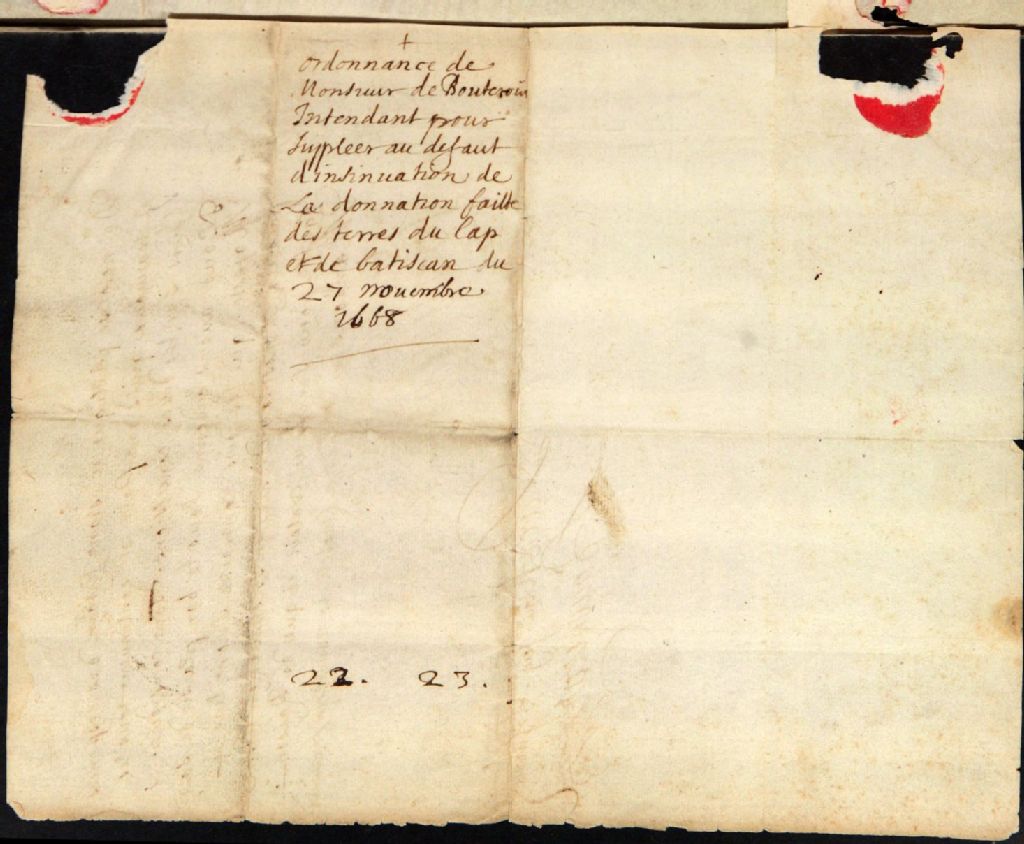 +
ordonnance de
Monsieur de Bouteroüe
Intendant pour
supleer au defaut
d'insinuation de
La donnation faitte
des terres du Cap
et de batiscan du
27 nouembre
1668
22. 23.